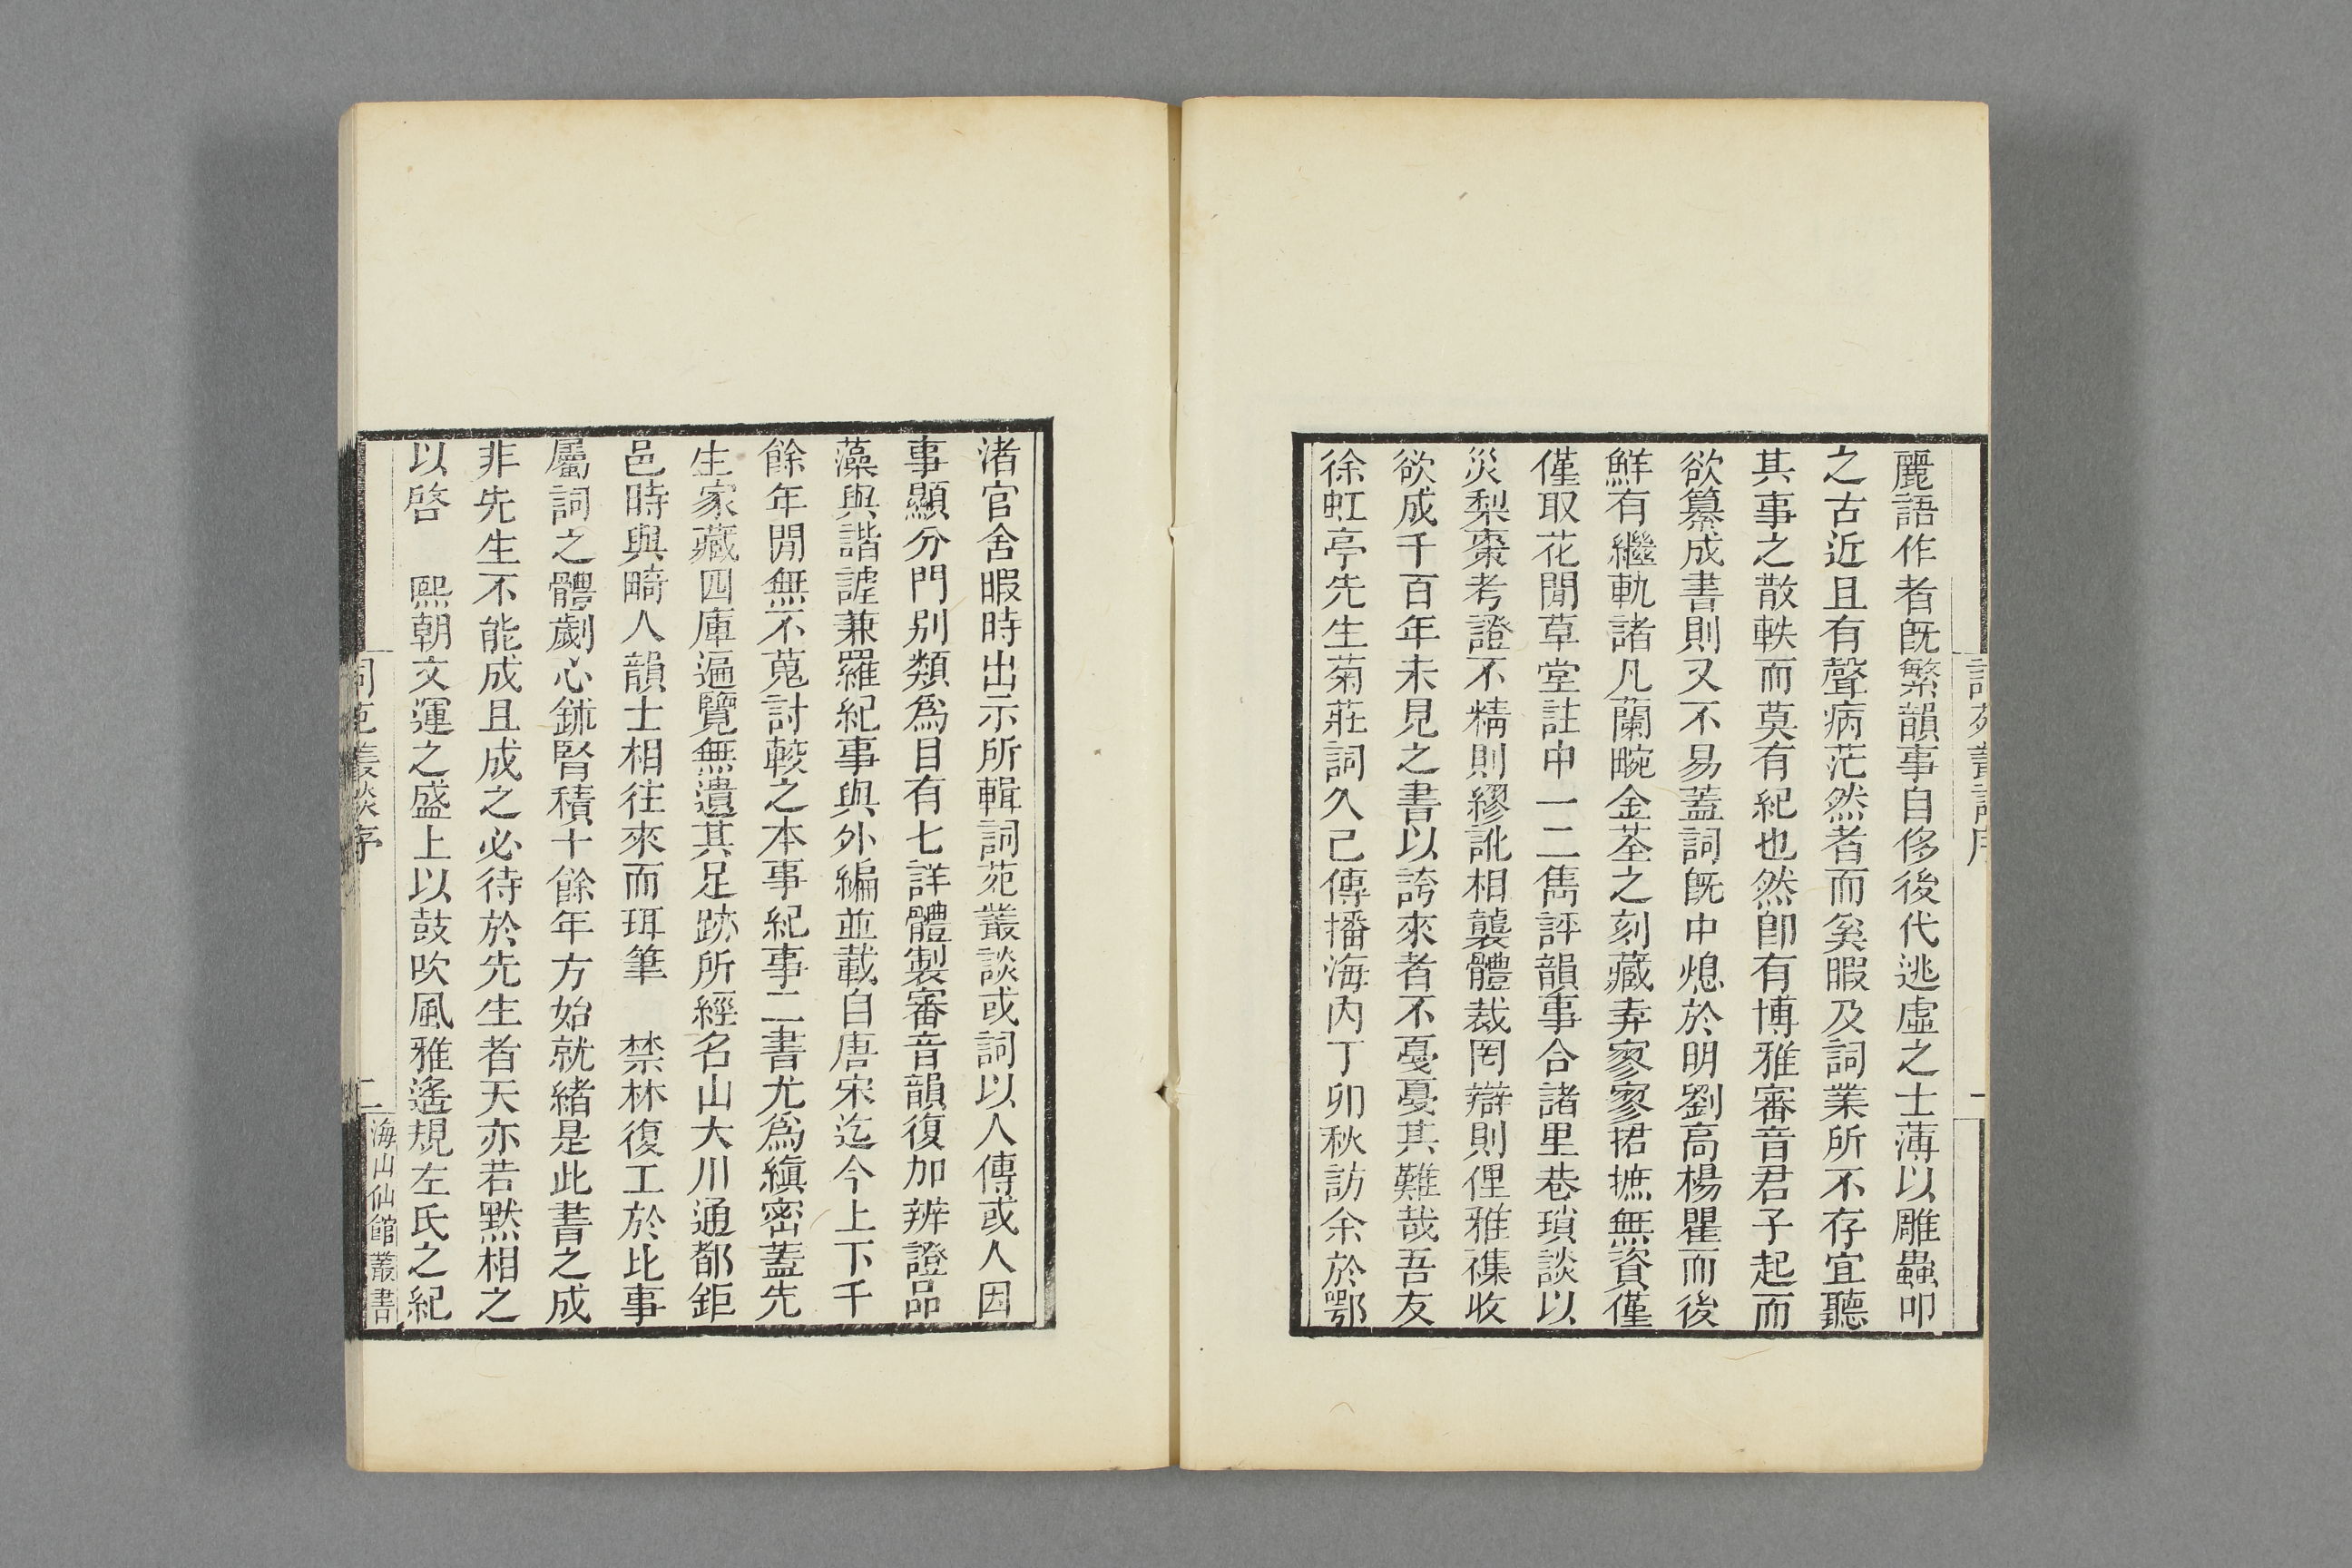 詞苑叢談序
一
麗語作者旣繁韻事自侈後代逃虛之士薄以雕蟲叩
之古近且有聲病茫然者而奚暇及詞業所不存宜聽
其事之散軼而莫有紀也然卽有博雅審音君子起而
欲纂成書則又不易蓋詞旣中熄於明劉高楊瞿而後
鮮有繼軌諸凡蘭畹金荃之刻藏弆寥寥捃摭無資僅
僅取花閒草堂註中一二雋評韻事合諸里巷瑣談以
災梨棗考證不精則繆訛相襲體裁罔辯則俚雅襍收
欲成千百年未見之書以誇來者不戞戞其難哉吾友
徐虹亭先生菊莊詞久已傳播海內丁卯秋訪余於鄂
渚官舍暇時出示所輯詞苑叢談或詞以人傳或人因
事顯分門別類爲目有七詳體製審音韻復加辨證品
藻與諧謔兼羅紀事與外編並載自唐宋迄今上下千
餘年閒無不蒐討較之本事紀事二書尤爲縝密蓋先
生家藏四庫遍覽無遺其足跡所經名山大川通都鉅
邑時與畸人韻士相往來而珥筆　禁林復工於比事
屬詞之體劌心鉥腎積十餘年方始就緒是此書之成
非先生不能成且成之必待於先生者天亦若默相之
以啓　熙朝文運之盛上以鼓吹風雅遙規左氏之紀
詞苑叢談序
二
海山仙館叢書